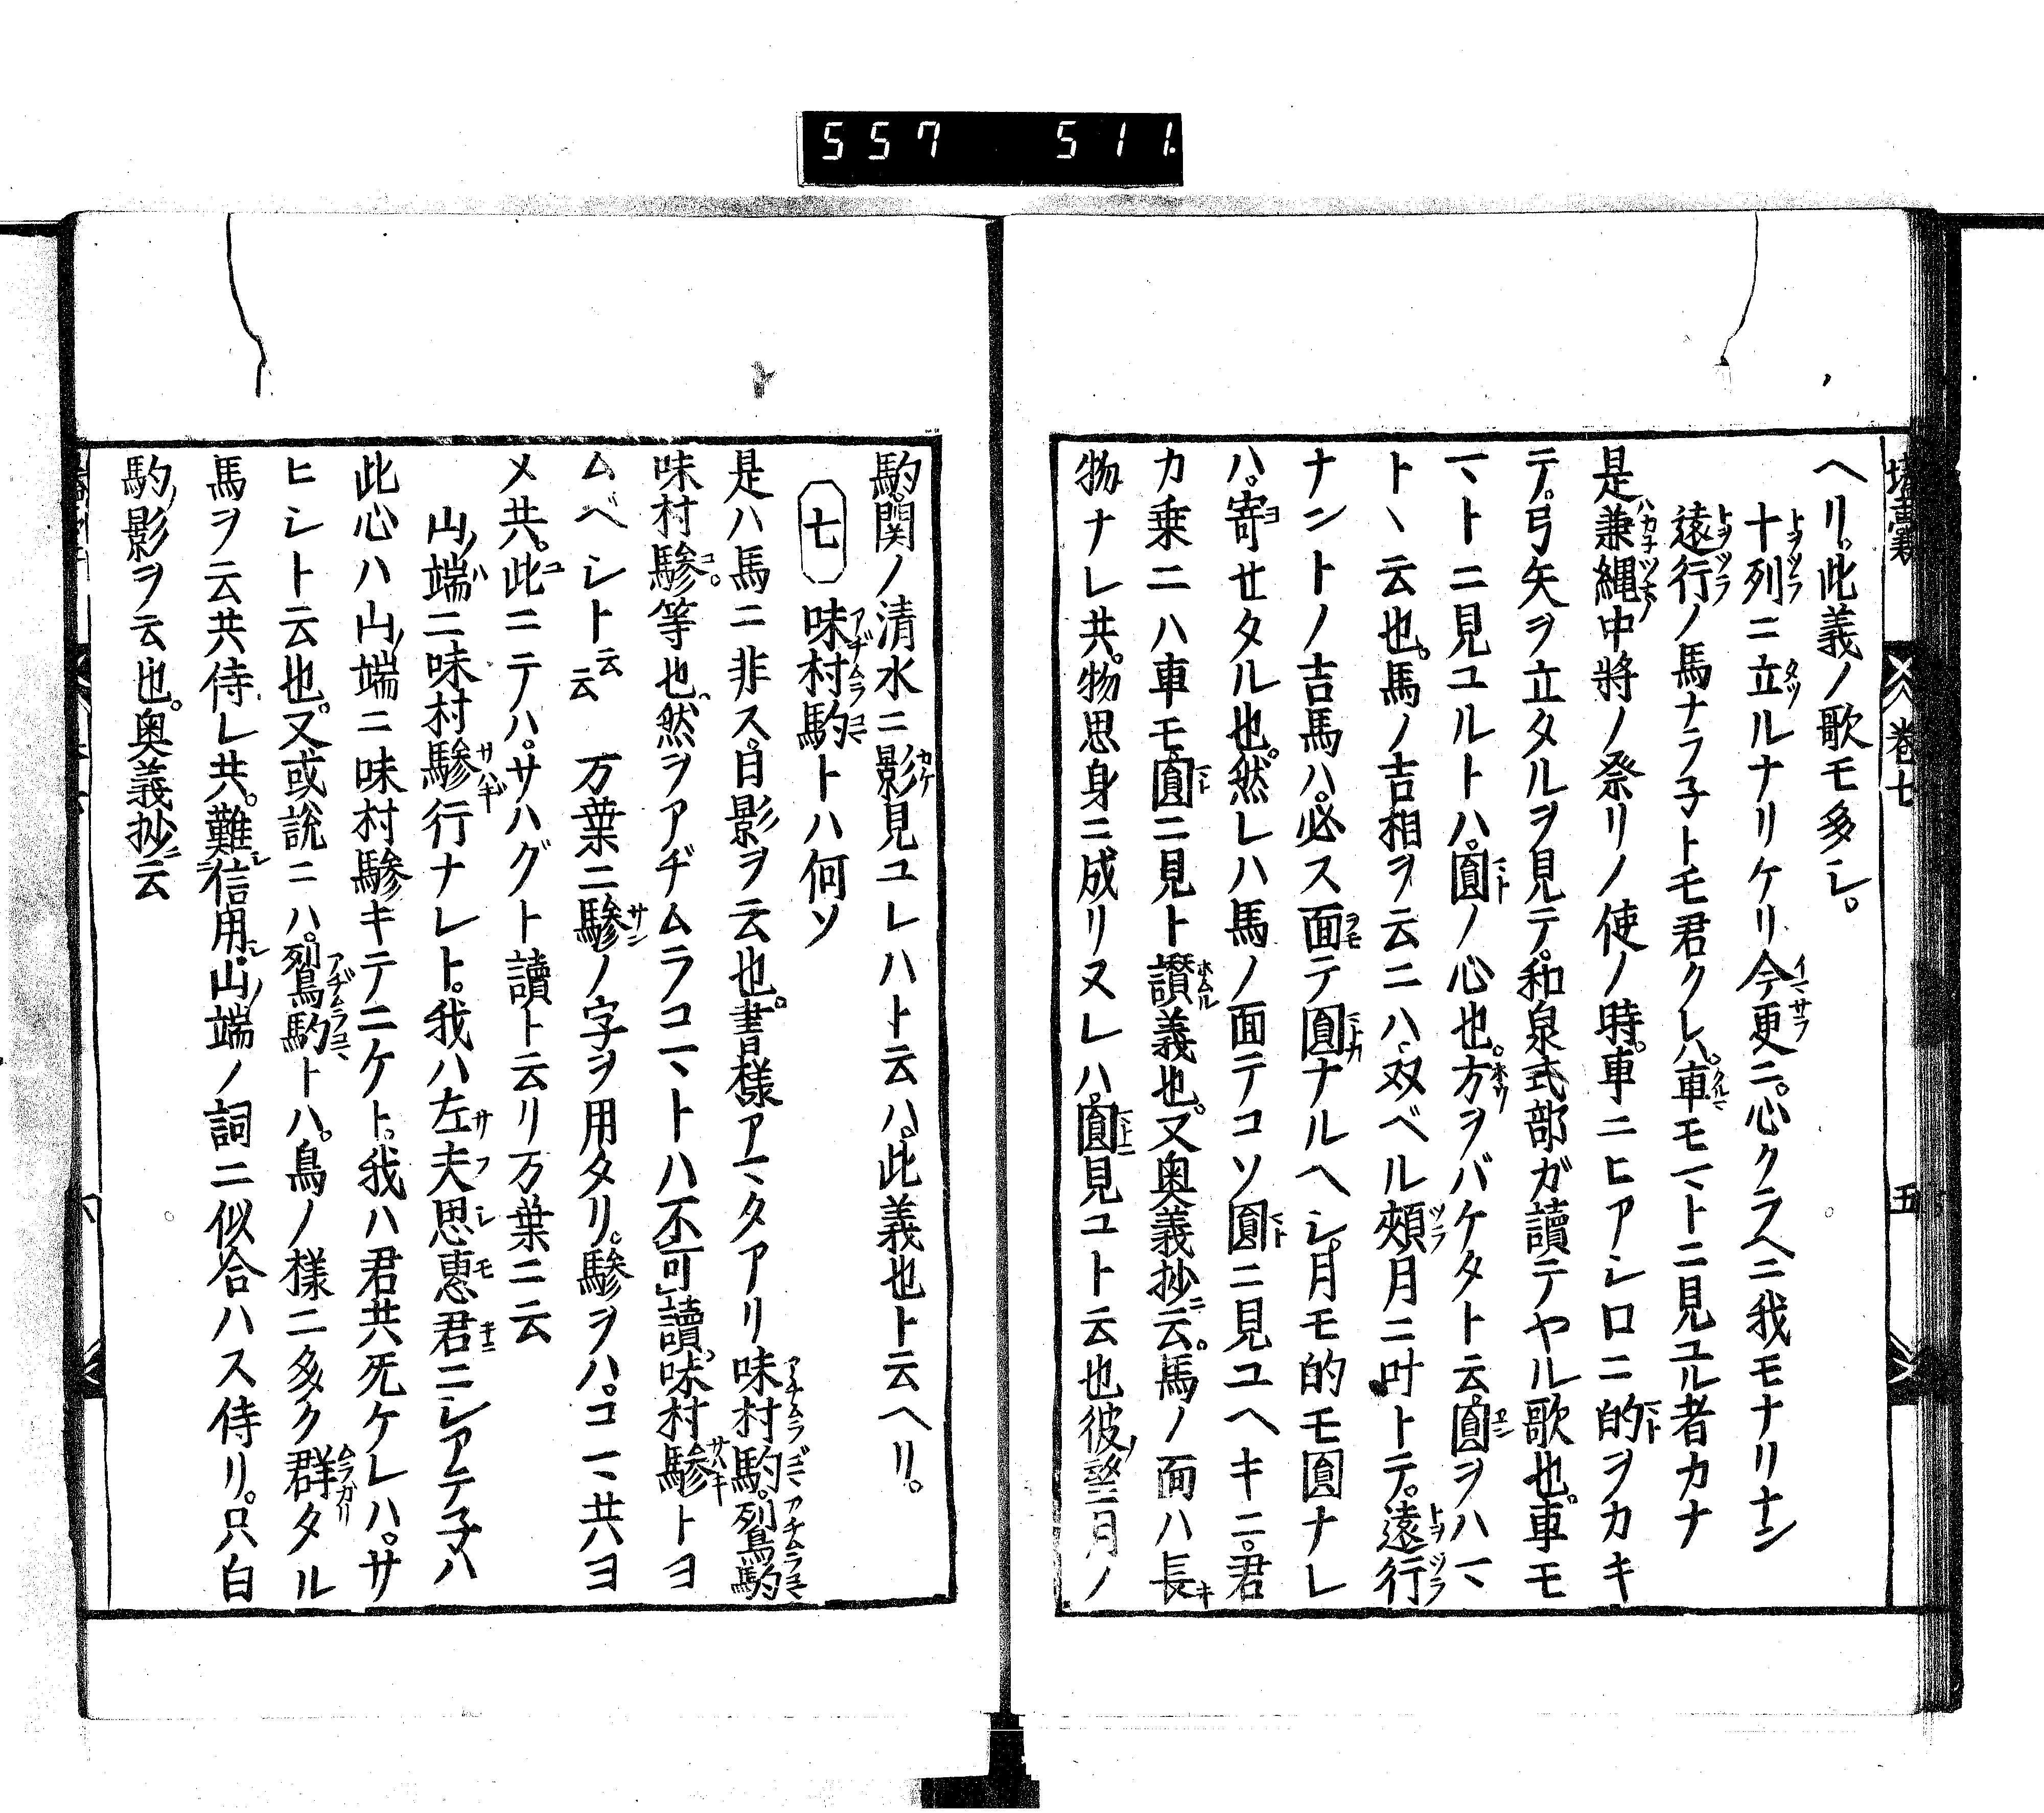 557 511.
壒嚢 巻七 五
ヘリ。此義ノ歌モ多シ。
十列ニ立ルナリケリ今更ニ。心クラヘニ我モナリナン
遠行ノ馬ナラ子トモ君クレハ。車モマトニ見ユル者カナ
是兼縄中將ノ祭リノ使ノ時。車ニヒアシロニ的ヲカキ
テ。弓矢ヲ立タルヲ見テ。和泉式部ガ讀テヤル歌也。車モ
マトニ見ユルトハ。圓ノ心也。方ヲバケタト云圓ヲハマ
トヽ云也。馬ノ吉相ヲ云ニハ、双ベル頰月ニ叶トテ。遠行
ナントノ吉馬ハ。必ス面テ圓ナルヘシ。月モ的モ圓ナレ
ハ。寄セタル也。然レハ馬ノ面テコソ圓ニ見ユヘキニ。君
カ乗ニハ車モ圓ニ見ト讃義也。又奥義抄云。馬ノ面ハ長
物ナレ共。物思身ニ成リヌレハ。圓見ユト云也彼望月ノ
駒。関ノ清水ニ影見ユレハト云ハ。此義也ト云ヘリ。
七 味村駒トハ何ソ
是ハ馬ニ非ス。日影ヲ云也。書様アマタアリ味村駒。鴷駒
味村驂等也。然ヲアヂムラコマトハ不可讀。味村驂トヨ
ムベシト云云 万葉ニ驂ノ字ヲ用タリ。驂ヲハ。コマ共ヨ
メ共。此ニテハ。サハグト讀ト云リ万葉ニ云
山ノ端ニ味村驂行ナレト。我ハ左夫思恵君ニシアテ子ハ
此心ハ山ノ端ニ味村驂キテニケト。我ハ君共死ケレハ。サ
ヒシト云也。又或説ニハ。鴷駒トハ。鳥ノ様ニ多ク群タル
馬ヲ云共侍レ共。難信用。山ノ端ノ詞ニ似合ハス侍リ。只白
駒ノ影ヲ云也。奥義抄云